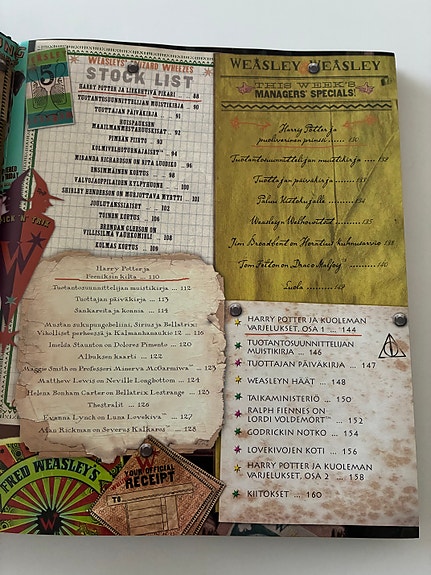 WEASLEYS' WIZARD WHEEZES
STOCK LIST
HARRY POTTER JA LIEKEHTIVÄ PIKARI ... 88
TUOTANTOSUUNNITTELIJAN MUISTIKIRJA ... 90
TUOTTAJAN PÄIVÄKIRJA ... 91
HUISPAUKSEN
MAAILMANMESTARUUSKISAT ... 92
PIMEÄN PIIRTO ... 93
KOLMIVELHOTURNAJAISET ... 94
MIRANDA RICHARDSON ON RITA LUODIKO ... 96
ENSIMMÄINEN KOETUS ... 98
VALVOJAOPPILAIDEN KYLPYHUONE ... 100
SHIRLEY HENDERSON ON MURJOTTAVA MYRTTI ... 101
JOULUTANSSIAISET ... 102
TOINEN KOETUS ... 106
BRENDAN GLEESON ON
VILLISILMÄ VAUHKOMIELI ... 108
KOLMAS KOETUS ... 109
Harry Potter ja
Feeniksin kilta ... 110
Tuotantosuunnittelijan muistikirja ... 112
Tuottajan päiväkirja ... 113
Sankareita ja konnia ... 114
Mustan sukupuegobeliini, Sirius ja Bellatrix:
Viholliset perheessä ja Kalmanhanaukio 12 ... 116
Imelda Staunton on Dolores Pimento ... 120
Albuksen kaarti ... 122
Maggie Smith on Professori Minerva McGarmiwa™ ... 123
Matthew Lewis on Neville Longbottom ... 124
Helena Bonham Carter on Bellatrix Lestrange ... 125
Thestralit ... 126
Evanna Lynch on Luna Lovekiva™ ... 127
Alan Rickman on Severus Kalkaros™ ... 128
FRED WEASLEY'S
YOUR OFFICIAL
RECEIPT
TO
WEASLEY & WEASLEY
THIS WEEK'S
MANAGERS' SPECIALS!
Harry Potter ja
puoliverinen prinssi ... 130
Tuotantosuunnittelijan muistikirja ... 132
Tuottajan päiväkirja ... 133
Paluu Kistakujalle ... 134
Weasleyn Welhowitsit ... 135
Jim Broadbent on Horatius Kuhnusarvio 138
Tom Felton on Draco Malfoy™ ... 140
Luola ... 142
HARRY POTTER JA KUOLEMAN
VARJELUKSET, OSA 1 ... 144
TUOTANTOSUUNNITTELIJAN
MUISTIKIRJA ... 146
TUOTTAJAN PÄIVÄKIRJA ... 147
WEASLEYN HÄÄT ... 148
TAIKAMINISTERIÖ ... 150
RALPH FIENNES ON
LORDI VOLDEMORT™ ... 152
GODRICKIN NOTKO ... 154
LOVEKIVOJEN KOTI ... 156
HARRY POTTER JA KUOLEMAN
VARJELUKSET, OSA 2 ... 158
KIITOKSET ... 160